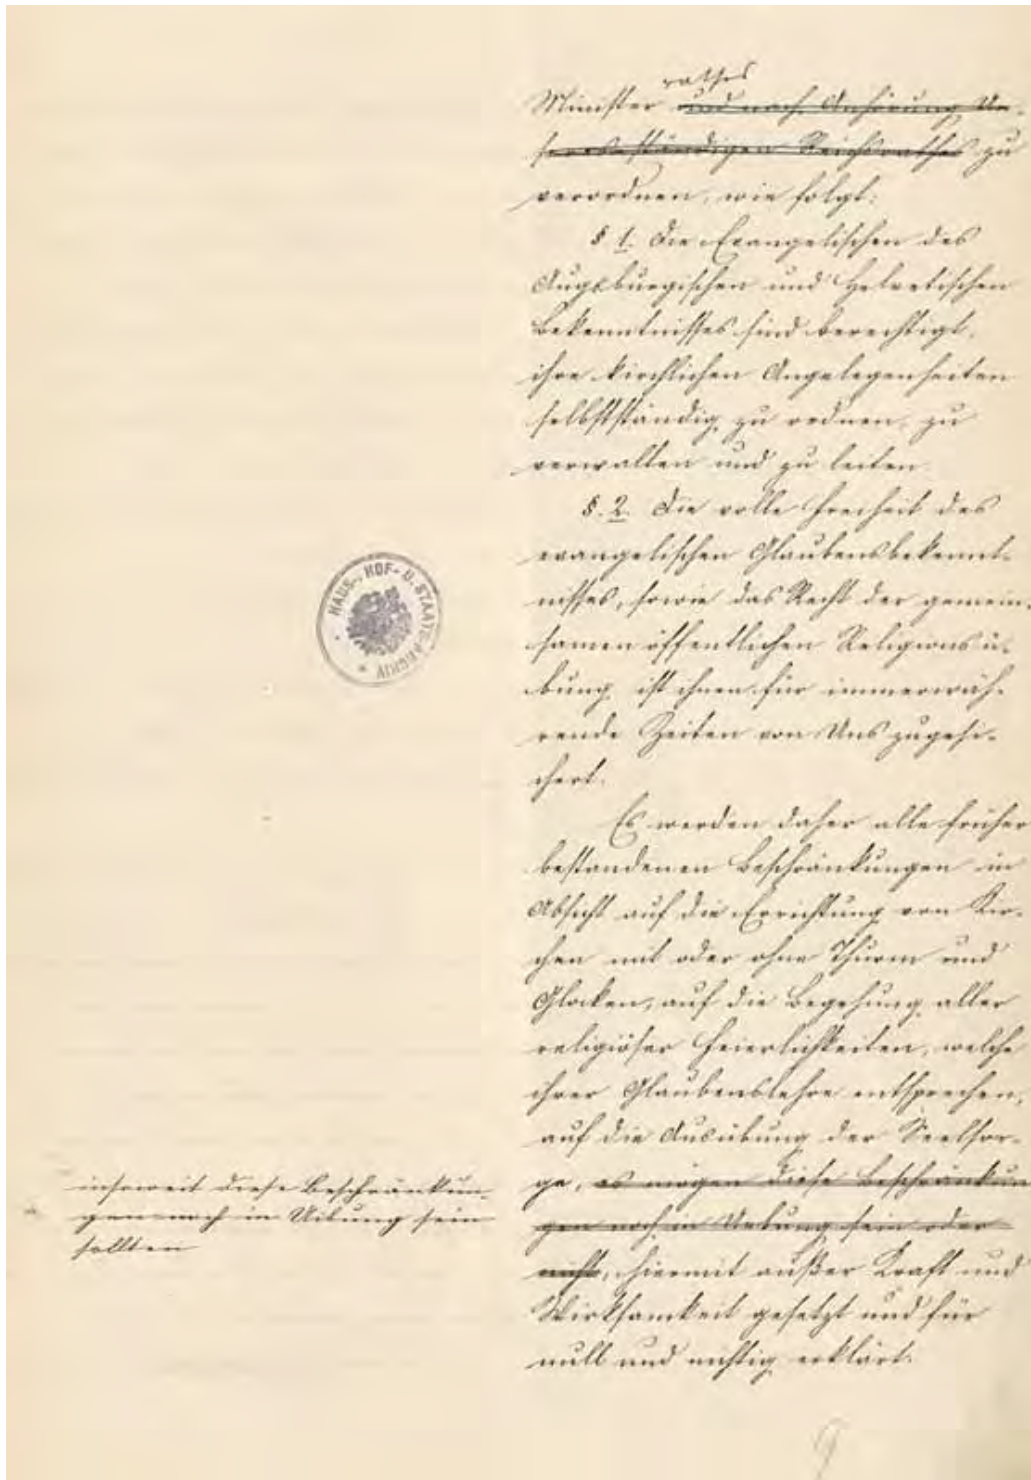 rathes
Minister und nach Anhörung Un-
seres ständigen Reichsrathes zu
verordnen, wie folgt:
§ 1. Die Evangelischen des
Augsburgischen und Helvetischen
Bekenntnisses sind berechtigt,
ihre kirchlichen Angelegenheiten
selbstständig zu ordnen, zu
verwalten und zu leiten.
§. 2. Die volle Freiheit des
evangelischen Glaubensbekennt-
nisses, sowie das Recht der gemein-
samen öffentlichen Religionsü-
bung ist ihnen für immerwäh-
rende Zeiten von Uns zugesi-
chert.
Es werden daher alle früher
bestandenen Beschränkungen in
Absicht auf die Errichtung von Kir-
chen mit oder ohne Thurm und
Glocken, auf die Begehung aller
religiöser Feierlichkeiten, welche
ihrer Glaubenslehre entsprechen,
auf die Ausübung der Seelsor-
ge, es mögen diese Beschränkun
gen noch in Uebung sein oder
nicht, hiermit außer Kraft und
Wirksamkeit gesetzt und für
null und nichtig erklärt.
insoweit diese Beschränkun-
gen noch in Uibung sein
sollten
HAUS-, HOF- U. STAATS-ARCHIV